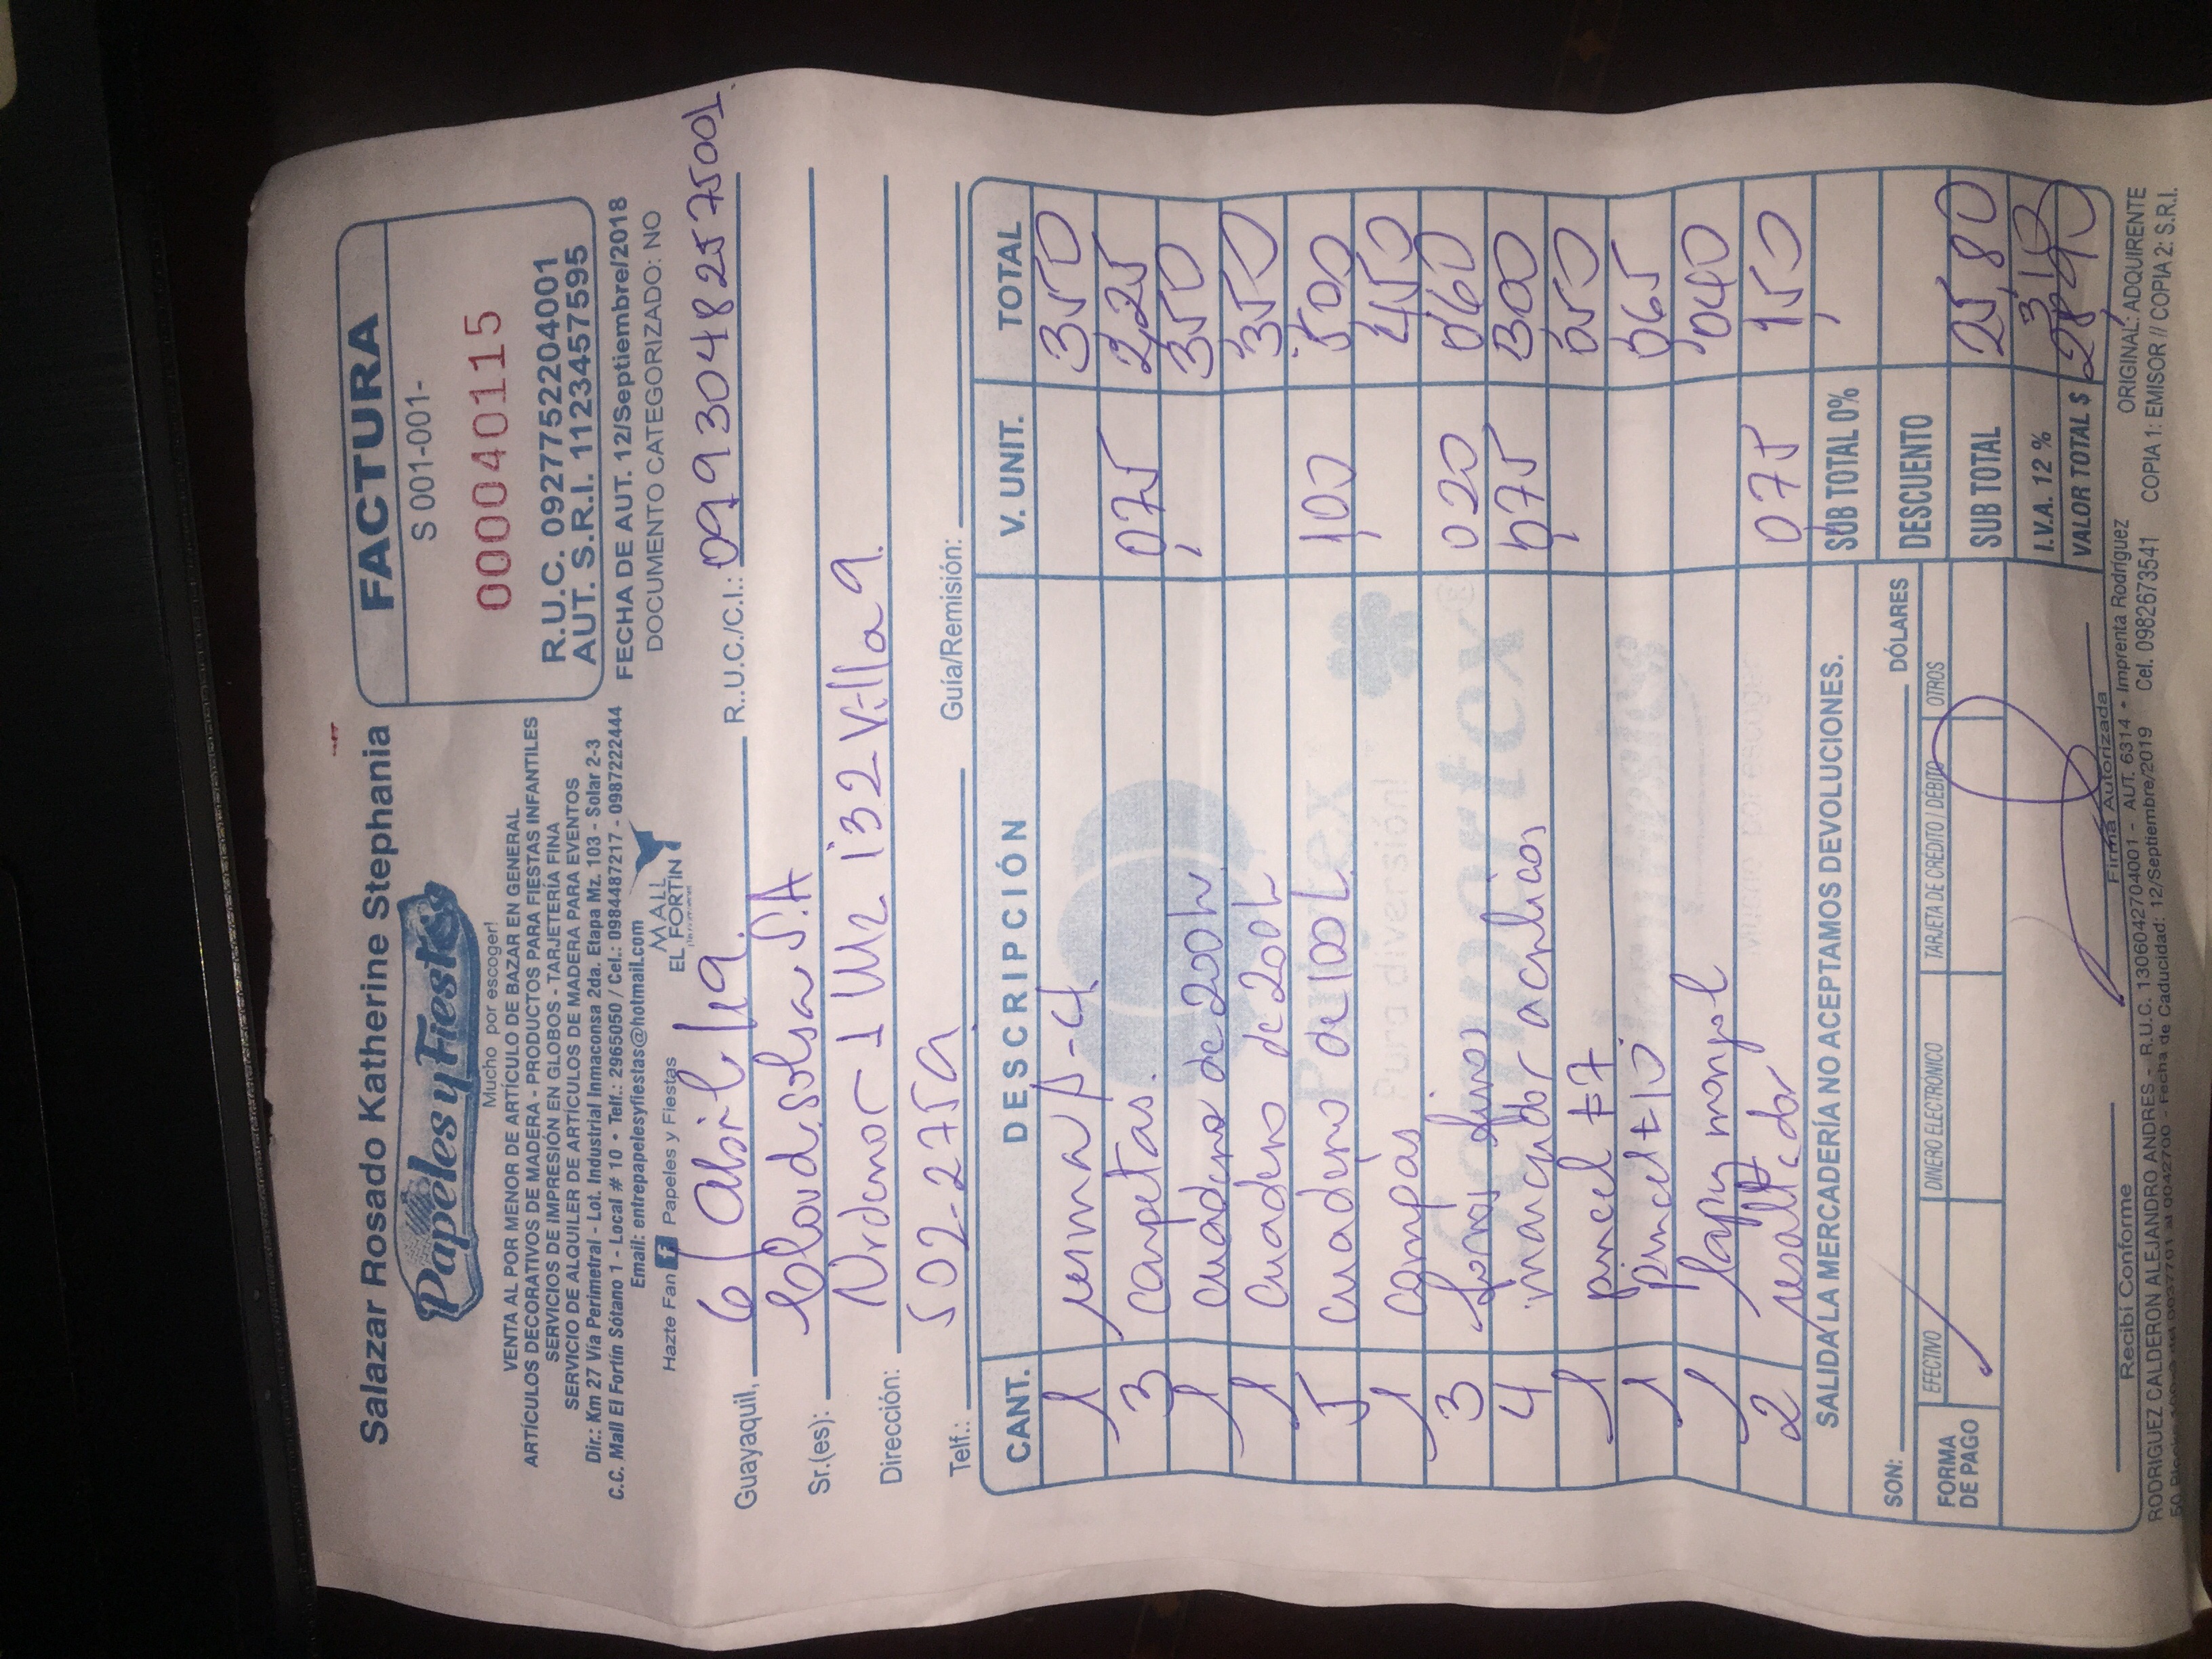 Salazar Rosado Katherine Stephania
Papeles y Fiestas
Mucho por escoger!
VENTA AL POR MENOR DE ARTÍCULO DE BAZAR EN GENERAL
ARTÍCULOS DECORATIVOS DE MADERA - PRODUCTOS PARA FIESTAS INFANTILES
SERVICIOS DE IMPRESIÓN EN GLOBOS - TARJETERÍA FINA
SERVICIO DE ALQUILER DE ARTÍCULOS DE MADERA PARA EVENTOS
Dir.: Km 27 Vía Perimetral - Lot. Industrial Inmaconsa 2da. Etapa Mz. 103 - Solar 2-3
C.C. Mall El Fortín Sótano 1 - Local # 10 • Telf.: 2965050 / Cel.: 0984487217 - 0987222444
Email: entrepapelesyfiestas@hotmail.com
Hazte Fan f Papeles y Fiestas
MALL
EL FORTÍN
FACTURA
S 001-001-
000040115
R.U.C. 0927752204001
AUT. S.R.I. 1123457595
FECHA DE AUT. 12/Septiembre/2018
DOCUMENTO CATEGORIZADO: NO
Guayaquil, 6/Abril/19. R..U.C./C.I.: 09930482575001
Sr.(es): Cloudsolsa S.A
Dirección: Urdenor 1 Mz i32 Villa 9.
Telf.: 502-2759 Guía/Remisión:
CANT. DESCRIPCIÓN V. UNIT. TOTAL
1 resma A-4 3,50
3 carpetas. 0,75 2,25
1 cuaderno de 200h 3,50
1 cuaderno de 200h 3,50
5 cuaderno de 100h 1,00 5,00
1 compás 4,50
3 forros finos 0,20 0,60
4 marcador acrilicos 0,75 3,00
1 pincel #7 0,50
1 pincel #10 0,65
1 lapiz mongol 0,40
2 resaltador 0,75 1,50
SALIDA LA MERCADERÍA NO ACEPTAMOS DEVOLUCIONES.
SUB TOTAL 0%
SON: DÓLARES
DESCUENTO
FORMA DE PAGO EFECTIVO DINERO ELECTRÓNICO TARJETA DE CRÉDITO / DÉBITO OTROS
SUB TOTAL 25,80
I.V.A. 12 % 3,10
VALOR TOTAL $ 28,90
Recibí Conforme Firma Autorizada
RODRIGUEZ CALDERON ALEJANDRO ANDRES - R.U.C. 1306042704001 - AUT. 6314 • Imprenta Rodríguez
50 Blocks 100x3 del 0037701 al 0042700 - Fecha de Caducidad: 12/Septiembre/2019 Cel. 0982673541
ORIGINAL: ADQUIRENTE
COPIA 1: EMISOR // COPIA 2: S.R.I.
Partytex
Pura diversión!
Sempertex
Papeles y Fiestas
Mucho por escoger